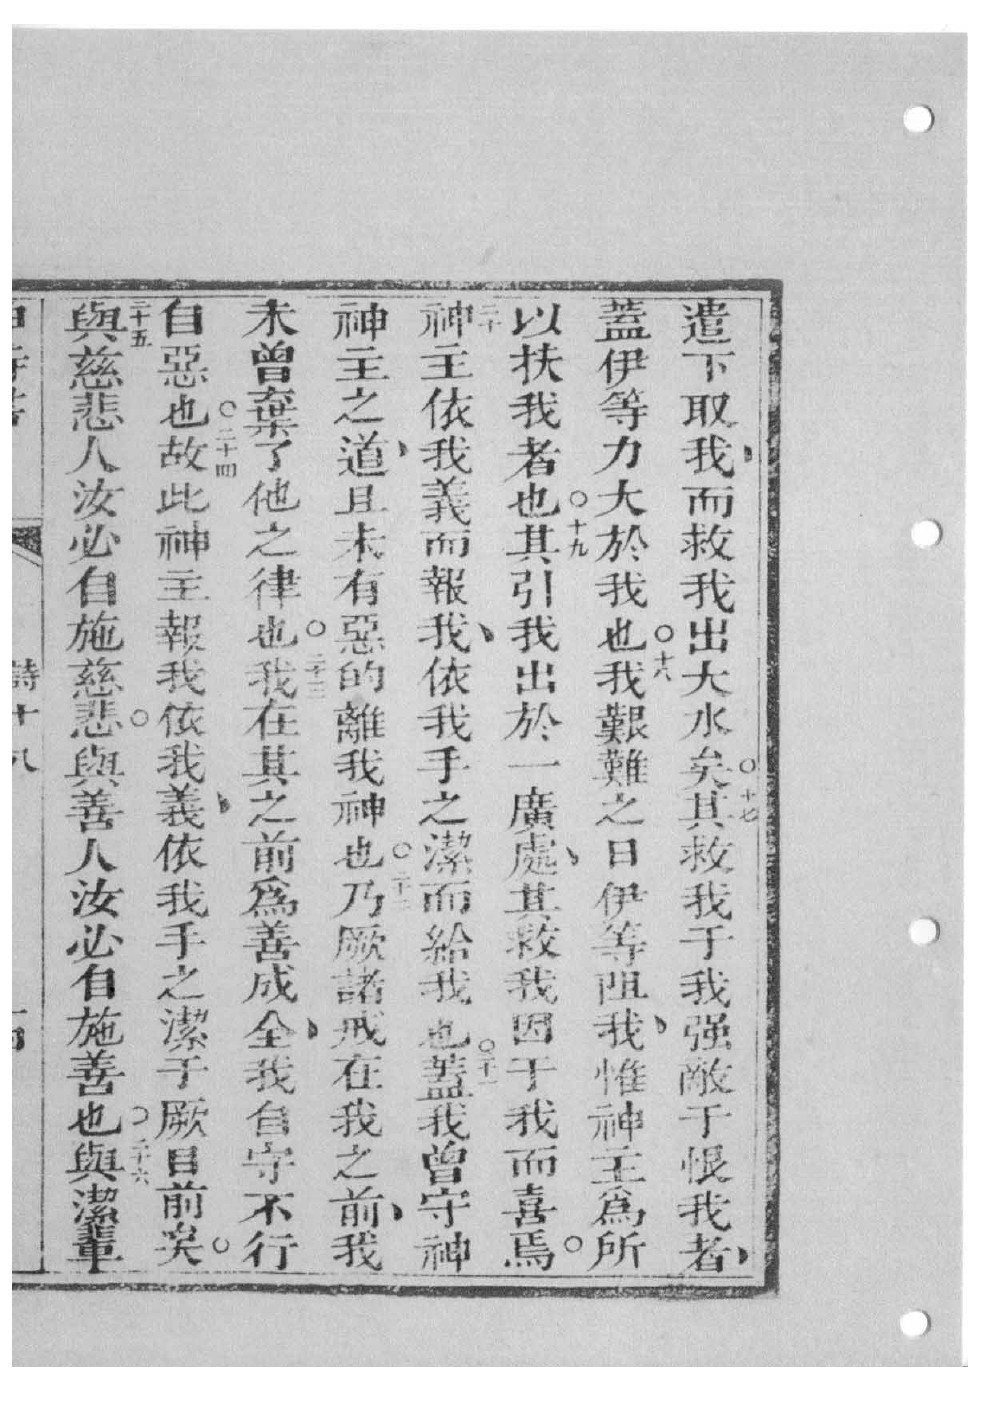 遣下取我、而救我出大水矣。十七其救我于我强敵于恨我者、
蓋伊等力大於我也。十八我艱難之日伊等阻我、惟神主爲所
以扶我者也。十九其引我出於一廣處、其救我因于我而喜焉。
二十神主依我義而報我、依我手之潔而給我也。二十一蓋我曾守神
神主之道、且未有惡的離我神也。二十二乃厥諸戒在我之前、我
未曾棄了他之律也。二十三我在其之前爲善成全、我自守不行
自惡也。二十四故此神主報我依我義、依我手之潔于厥目前矣。
二十五與慈悲人汝必自施慈悲。與善人汝必自施善也。二十六與潔輩
詩十八